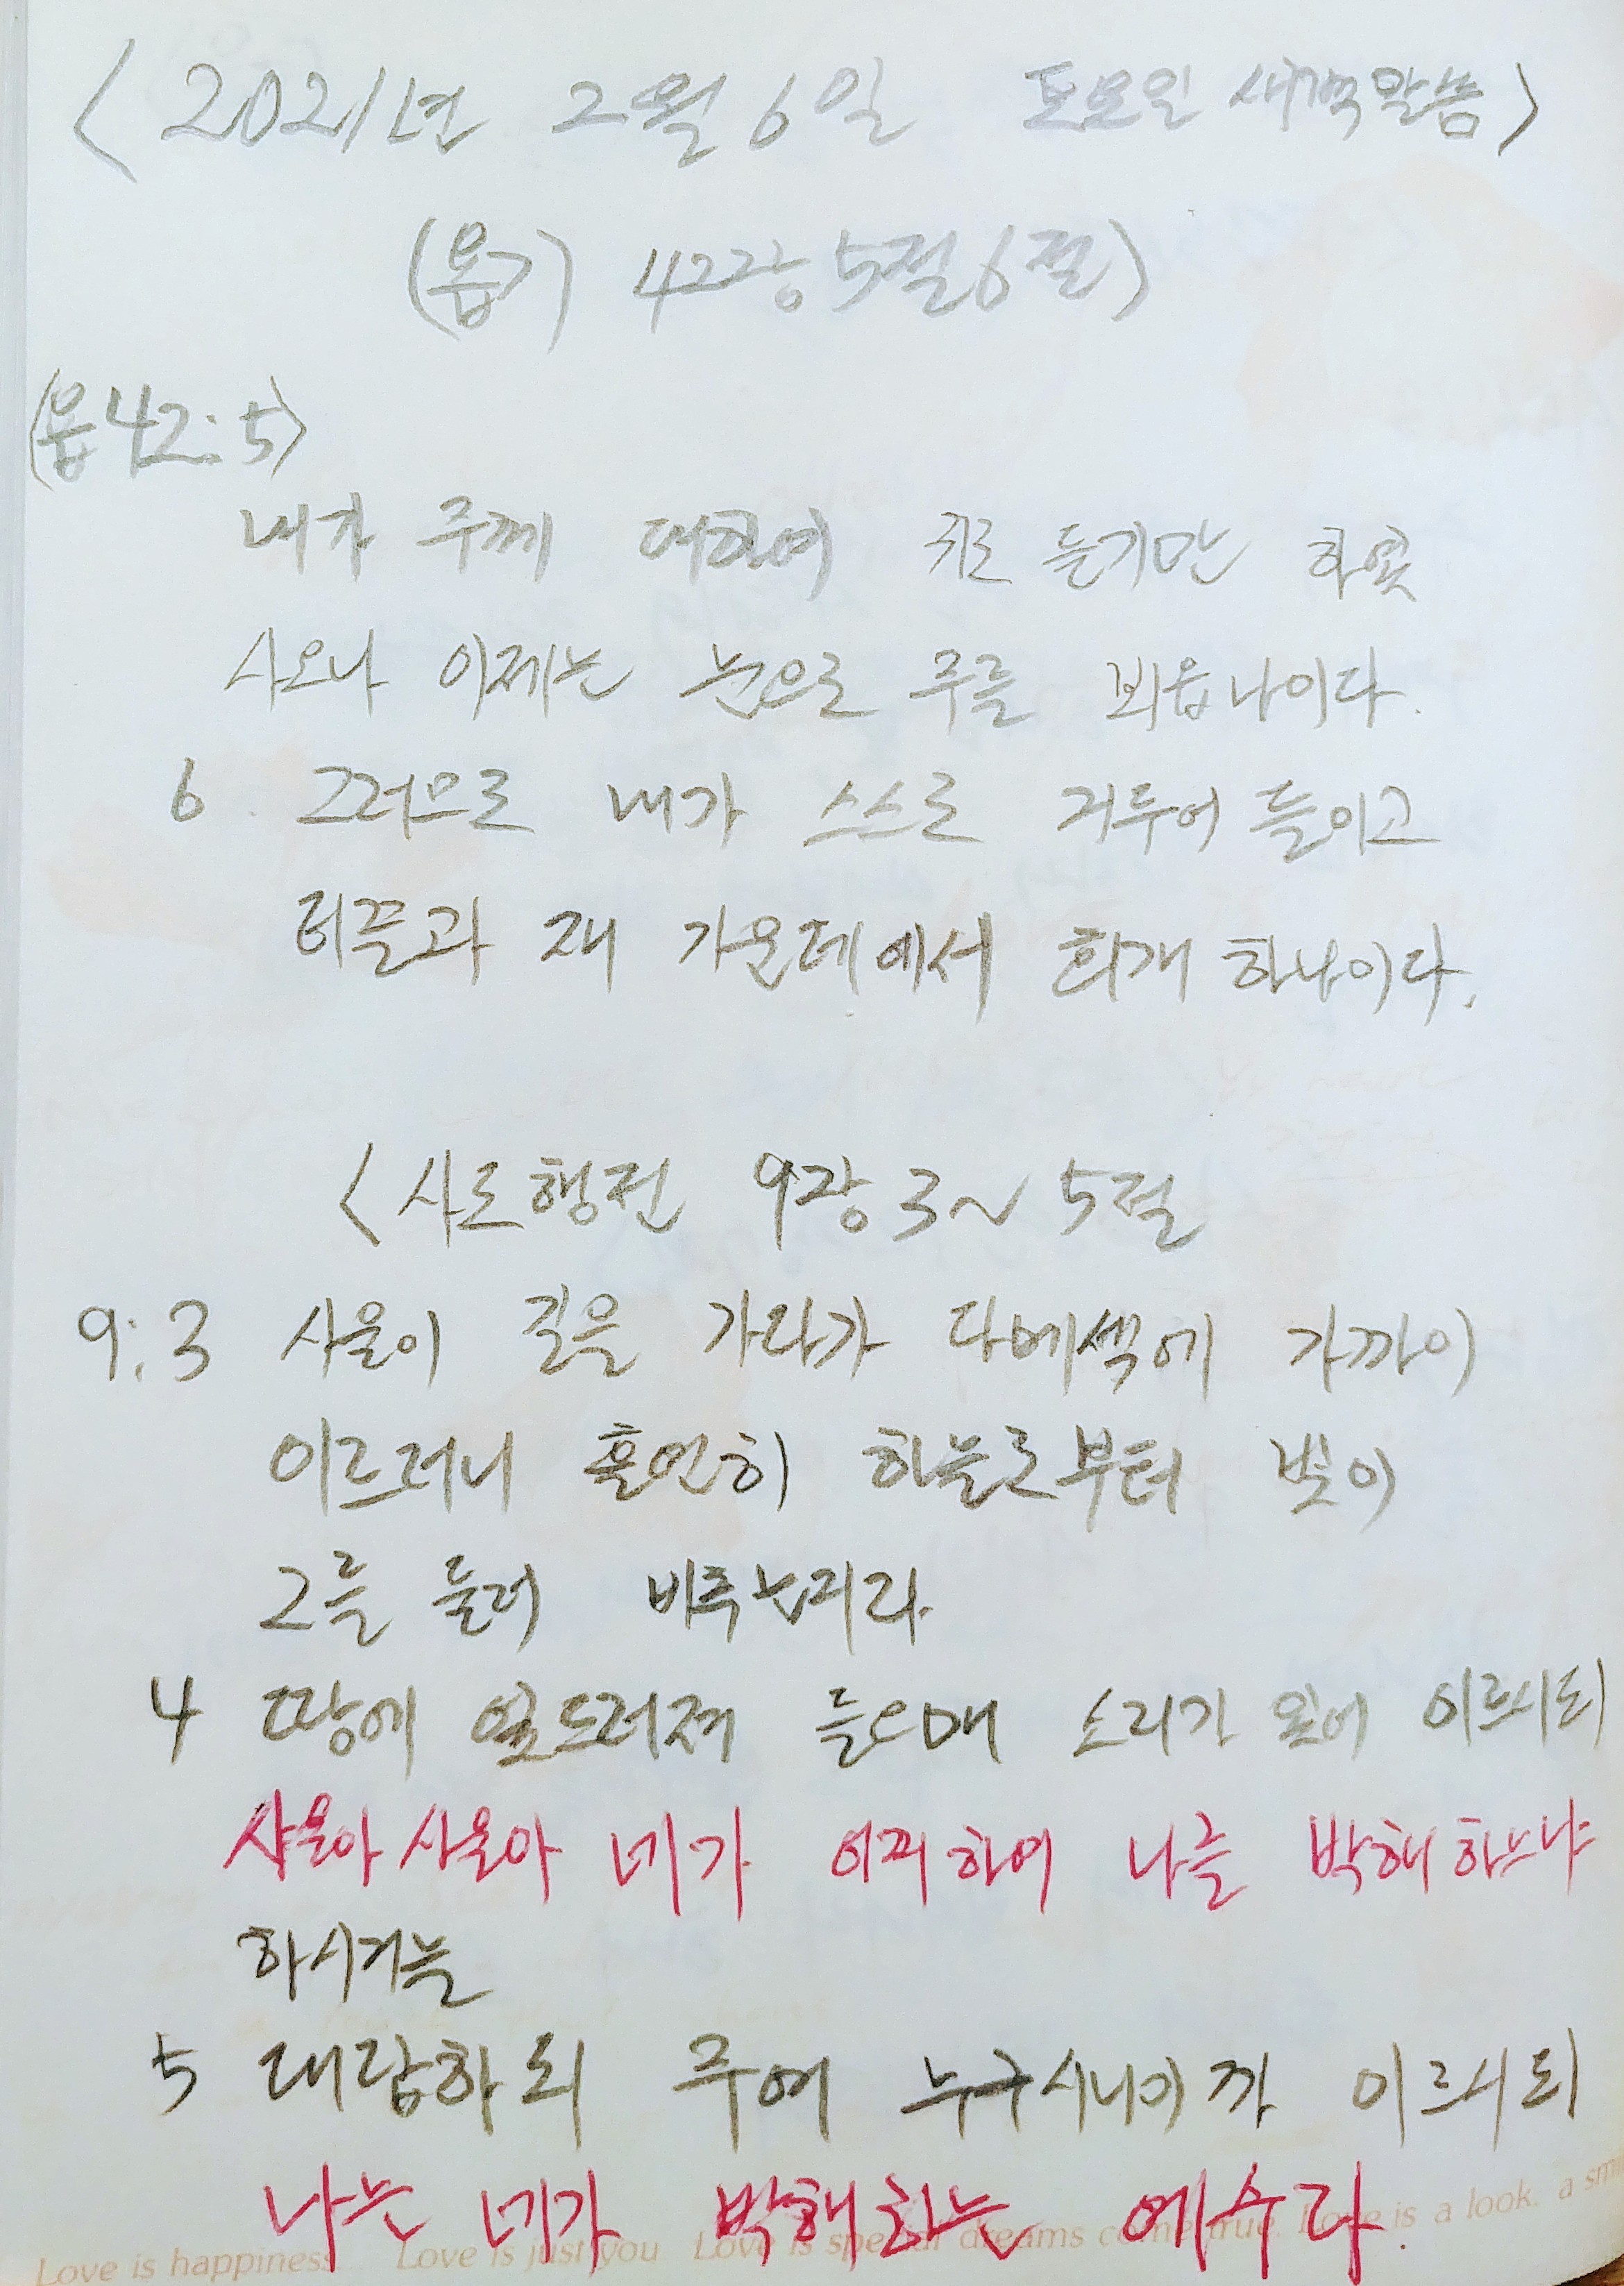 < 2021년 2월 6일 토요일 새벽말씀 >
(욥기) 42장 5절 6절)
(욥 42:5>
내가 주께 대하여 귀로 듣기만 하였
사오나 이제는 눈으로 주를 뵈옵나이다.
6. 그러므로 내가 스스로 거두어 들이고
티끌과 재 가운데에서 회개 하나이다.
< 사도행전 9장 3~5절
9:3 사울이 길을 가다가 다메섹에 가까이
이르러니 홀연히 하늘로부터 빛이
그를 둘러 비추는지라.
4 땅에 엎드러져 들으매 소리가 있어 이르시되
사울아 사울아 네가 어찌하여 나를 박해하느냐
하시거늘
5 대답하되 주여 누구시니이까 이르시되
나는 네가 박해하는 예수라.
Love is happiness Love is just you Love is special dreams come true. Love is a look. a smi